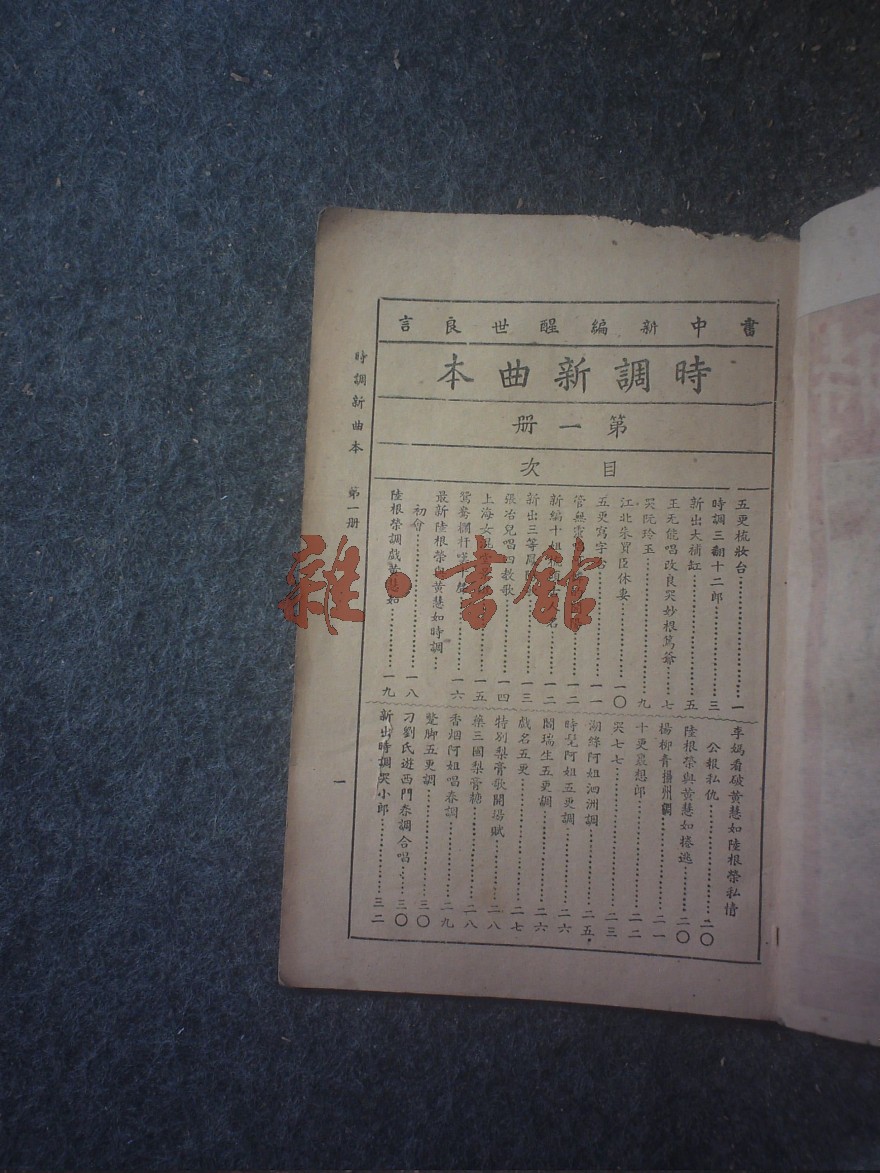 書中新編醒世良言
時調新曲本
第一册
目次
五更梳妝台…………一
時調三翻十二郎…………三
新出大補缸…………五
王无能唱改良哭妙根篤爺…………七
哭阮玲玉…………九
江北朱買臣休妻…………一〇
五更寫字台…………一一
管無靈…………一二
新編十姐…………一二
新出三等…………一三
張冶兒唱四教歌…………一四
上海女…………一五
鴛鴦欄杆…………一六
最新陸根榮與黃慧如時調…………
初會…………一八
陸根榮調戲黃慧如…………一九
李媽看破黃慧如陸根榮私情
公報私仇…………二〇
陸根榮與黃慧如捲逃…………二〇
楊柳青揚州調…………二一
十更裏想郎…………二二
哭七七…………二三
湖絲阿姐泗洲調…………二五
時髦阿姐五更調…………二六
閻瑞生五更調…………二六
戲名五更…………二七
特別梨膏歌開場賦…………二八
藥三國梨膏糖…………二八
香烟阿姐唱春調…………二九
蹩脚五更調…………三〇
刁劉氏遊西門春調合唱…………三〇
新出時調哭小郎…………三二
時調新曲本 第一册
一
雜·書館